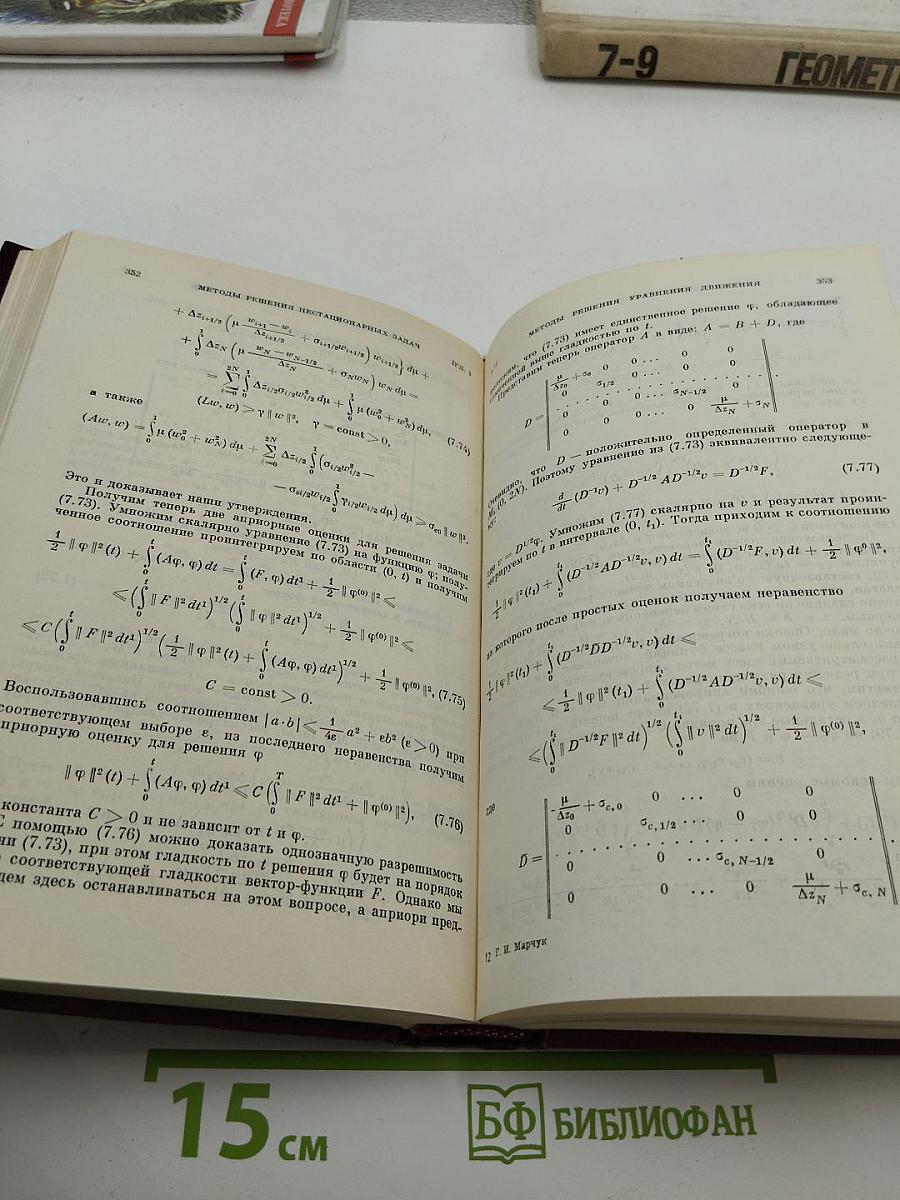 ОТЕКА
7-9 ГЕОМЕТ
352
МЕТОДЫ РЕШЕНИЯ НЕСТАЦИОНАРНЫХ ЗАДАЧ
+ Δz_{i+1/2} (μ (w_{i+1} − w_i)/Δz_{i+1/2} + σ_{i+1/2}w_{i+1/2}) w_{i+1/2}} dμ +
+ ∫_0^1 Δz_N (μ (w_N − w_{N−1/2})/Δz_N + σ_N w_N) w_N dμ =
= Σ_{i=0}^{2N} ∫_0^1 Δz_{i/2}σ_{i/2}w²_{i/2} dμ + ∫_0^1 μ (w²_0 + w²_N) dμ, (7.74)
а также (Lw, w) > γ ‖ w ‖², γ = const > 0,
(Aw, w) = ∫_0^1 μ (w²_0 + w²_N) dμ + Σ_{i=0}^{2N} Δz_{i/2} ∫_0^1 (σ_{i/2}w²_{i/2} −
− σ_{si/2}w_{i/2} ∫_0^1 γ_{i/2}w_{i/2} dμ) dμ ⩾ σ_{c0} ‖ w ‖².
Это и доказывает наши утверждения.
Получим теперь две априорные оценки для решения задачи
(7.73). Умножим скалярно уравнение (7.73) на функцию φ; полу-
ченное соотношение проинтегрируем по области (0, t) и получим
1/2 ‖ φ ‖² (t) + ∫_0^t (Aφ, φ) dt = ∫_0^t (F, φ) dt¹ + 1/2 ‖ φ^{(0)} ‖² ⩽
⩽ (∫_0^t ‖ F ‖² dt¹)^{1/2} (∫_0^t ‖ φ ‖² dt¹)^{1/2} + 1/2 ‖ φ^{(0)} ‖² ⩽
⩽ C (∫_0^t ‖ F ‖² dt¹)^{1/2} (1/2 ‖ φ ‖² (t) + ∫_0^t (Aφ, φ) dt¹)^{1/2} + 1/2 ‖ φ^{(0)} ‖², (7.75)
C = const > 0.
Воспользовавшись соотношением | a·b | ⩽ 1/4ε a² + εb² (ε > 0) при
соответствующем выборе ε, из последнего неравенства получим
априорную оценку для решения φ
‖ φ ‖² (t) + ∫_0^t (Aφ, φ) dt¹ ⩽ C (∫_0^T ‖ F ‖² dt¹ + ‖ φ^{(0)} ‖²), (7.76)
константа C > 0 и не зависит от t и φ.
С помощью (7.76) можно доказать однозначную разрешимость
чи (7.73), при этом гладкость по t решения φ будет на порядок
соответствующей гладкости вектор-функции F. Однако мы
дем здесь останавливаться на этом вопросе, а априори пред-
МЕТОДЫ РЕШЕНИЯ УРАВНЕНИЯ ДВИЖЕНИЯ 353
что (7.73) имеет единственное решение φ, обладающее
выше гладкостью по t.
Представим теперь оператор A в виде: A = B + D, где
D = | μ/Δz_0 + σ_0 0 0 ... 0 0 |
0 σ_{1/2} 0 ... 0 0
. . . . . . . . . . . .
0 0 0 ... σ_{N−1/2} 0
0 0 0 ... 0 μ/Δz_N + σ_N
что D — положительно определенный оператор в
(0, 2N). Поэтому уравнение из (7.73) эквивалентно следующе-
d/dt (D⁻¹v) + D^{−1/2} AD^{−1/2}v = D^{−1/2}F, (7.77)
где v = D^{1/2}φ. Умножим (7.77) скалярно на v и результат проин-
тегрируем по t в интервале (0, t₁). Тогда приходим к соотношению
1/2 ‖ φ ‖² (t₁) + ∫_0^{t₁} (D^{−1/2}AD^{−1/2}v, v) dt = ∫_0^{t₁} (D^{−1/2}F, v) dt + 1/2 ‖ φ⁰ ‖²,
из которого после простых оценок получаем неравенство
1/2 ‖ φ ‖² (t₁) + ∫_0^{t₁} (D^{−1/2}D̄D^{−1/2}v, v) dt ⩽
⩽ 1/2 ‖ φ ‖² (t₁) + ∫_0^{t₁} (D^{−1/2}AD^{−1/2}v, v) dt ⩽
⩽ (∫_0^{t₁} ‖ D^{−1/2}F ‖² dt)^{1/2} (∫_0^{t₁} ‖ v ‖² dt)^{1/2} + 1/2 ‖ φ^{(0)} ‖²,
где
D̄ = | μ/Δz_0 + σ_{c,0} 0 ... 0 0 |
0 σ_{c,1/2} ... 0 0
. . . . . . . . . . . .
0 0 ... σ_{c, N−1/2} 0
0 0 ... 0 μ/Δz_N + σ_{c, N}
12 Г. И. Марчук
15 см
БФ БИБЛИОФАН